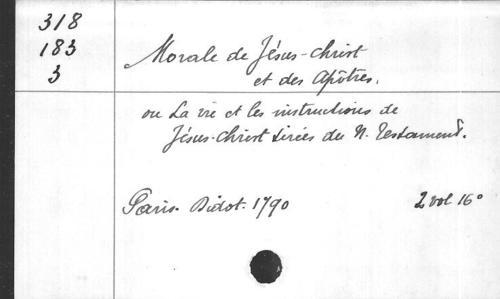 318
183
3
Morale de Jésus-Christ
et des Apôtres,
ou La vie et les instructions de
Jésus-Christ tirées du N. Testament.
Paris. Didot. 1790
2 vol 16°